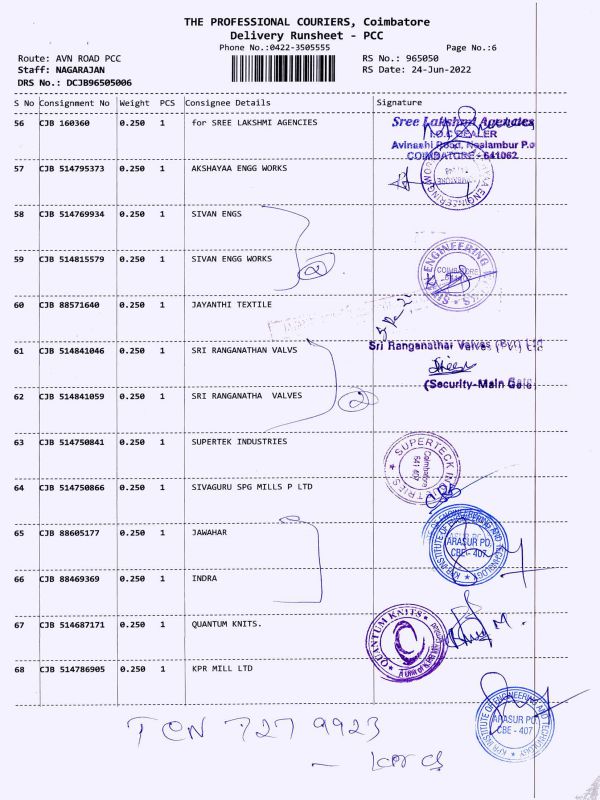 THE PROFESSIONAL COURIERS, Coimbatore
Delivery Runsheet - PCC
Phone No.:0422-3505555
Page No.:6
Route: AVN ROAD PCC
RS No.: 965050
Staff: NAGARAJAN
RS Date: 24-Jun-2022
DRS No.: DCJB96505006
S No Consignment No Weight PCS Consignee Details Signature
56 CJB 160360 0.250 1 for SREE LAKSHMI AGENCIES
Sree Lakshmi Agencies
I.O.C DEALER
Avinashi Road, Neelambur P.o
COIMBATORE - 641062
57 CJB 514795373 0.250 1 AKSHAYAA ENGG WORKS
58 CJB 514769934 0.250 1 SIVAN ENGS
59 CJB 514815579 0.250 1 SIVAN ENGG WORKS
2
60 CJB 88571640 0.250 1 JAYANTHI TEXTILE
61 CJB 514841046 0.250 1 SRI RANGANATHAN VALVS
Sri Ranganathar Valves (Pvt) Ltd
(Security-Main Gate)
62 CJB 514841059 0.250 1 SRI RANGANATHA VALVES
2
63 CJB 514750841 0.250 1 SUPERTEK INDUSTRIES
SUPERTECK INDUSTRIES
Coimbatore
641 407
64 CJB 514750866 0.250 1 SIVAGURU SPG MILLS P LTD
65 CJB 88605177 0.250 1 JAWAHAR
KPR INSTITUTE OF ENGINEERING AND TECHNOLOGY
ARASUR PO
CBE - 407
66 CJB 88469369 0.250 1 INDRA
67 CJB 514687171 0.250 1 QUANTUM KNITS.
QUANTUM KNITS
68 CJB 514786905 0.250 1 KPR MILL LTD
KPR INSTITUTE OF ENGINEERING AND TECHNOLOGY
ARASUR PO
CBE - 407
727 9923